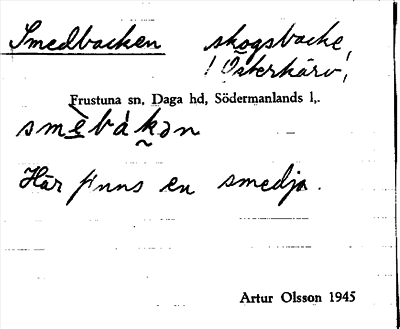 Smedbacken skogsbacke,
i Österkärv,
Frustuna sn, Daga hd, Södermanlands l,.
smèbákən
Här finns en smedja.
Artur Olsson 1945